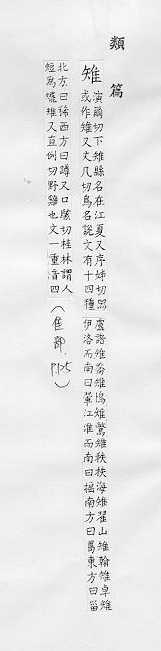 類篇
雉
演爾切下雉縣名在江夏又序姊切㗂
或作雉又丈几切鳥名說文有十四種
盧諸雉喬雉鳪雉鷩雉秩秩海雉翟山雉翰雉卓雉
伊洛而南曰翬江淮而南曰搖南方曰𠷎東方曰甾
北方曰稀西方曰蹲又口駭切桂林謂人
短為㹅雉又直例切野雞也文一重音四
(隹部 P.125)